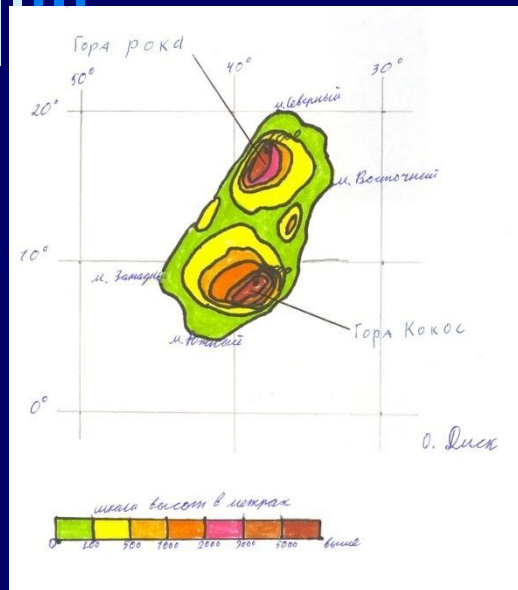 Гора рока
50° 40° 30°
20°
м. Северный
м. Восточный
10°
м. Западный
Гора Кокос
м. Южный
0°
о. Диск
шкала высот в метрах
0 200 500 1000 2000 3000 5000 выше